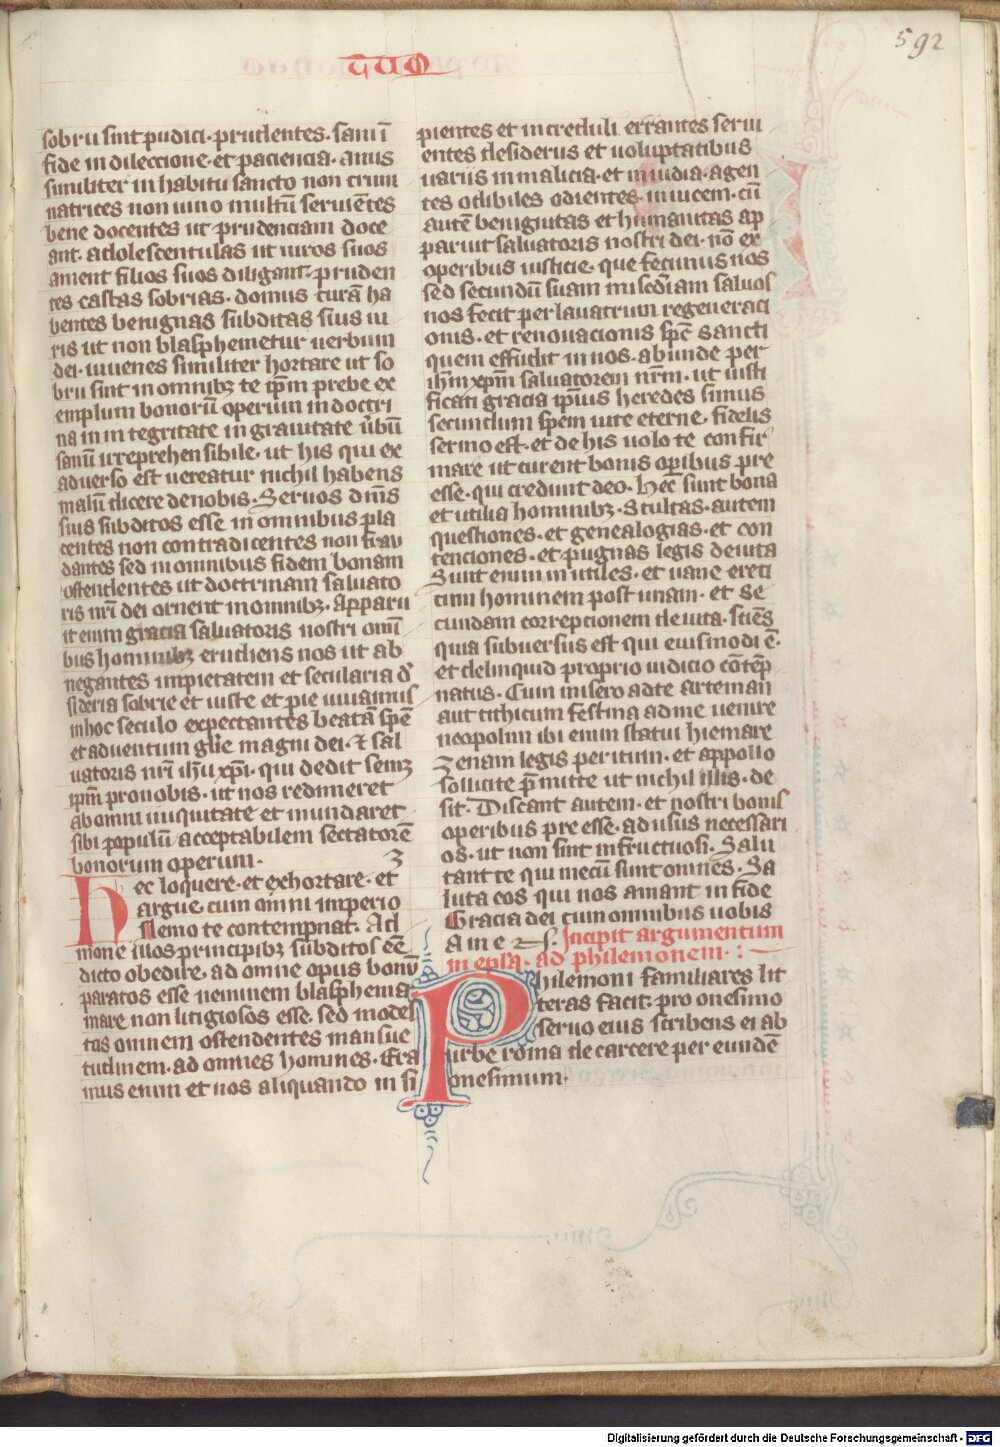 592
sobrii sint pudici · prudentes · sani ī
fide in dileccione · et paciencia · Anus
similiter in habitu sancto non crimi
natrices non uino multū seruiētes
bene docentes ut prudenciam doce
ant · adolescentulas ut uiros suos
ament filios suos diligant · pruden
tes castas sobrias · domus curā ha
bentes benignas subditas suis ui
ris ut non blasphemetur uerbum
dei · iuuenes similiter hortare ut so
brii sint in omnibꝫ te ip̄m prebe ex
emplum bonorū operum in doctri
na in integritate in grauitate u̇bū
sanū irreprehensibile · ut his qui ex
aduerso est uereatur nichil habens
malū dicere de nobis · Seruos dn̄is
suis subditos esse in omnibus pla
centes non contradicentes non frau
dantes sed in omnibus fidem bonam
ostendentes ut doctrinam saluato
ris nr̄i dei ornent in omnibꝫ · Apparu
it enim gracia saluatoris nostri om̄i
bus hominibꝫ erudiens nos ut ab
negantes impietatem et secularia d̓
sideria sobrie et iuste et pie uiuamus
in hoc seculo expectantes beatā spē
et aduentum gl̄ie magni dei · ⁊ sal
uatoris nr̄i ih̄u xp̄i · qui dedit semꝫ
ip̄m pro nobis · ut nos redimeret
ab omni iniquitate et mundaret
sibi populū acceptabilem sectatorē
bonorum operum · 3
Hec loquere · et exhortare · et
argue · cum omni imperio
Nemo te contempnat · Ad
mone illos principibꝫ subditos eē
dicto obedire · ad omne opus bonū
paratos esse neminem blasphema
mare non litigiosos esse · sed modes
tos omnem ostendentes mansue
tudinem · ad omnes homines · Era
mus enim et nos aliquando in si
pientes et increduli errantes serui
entes desideriis et uoluptatibus
uariis in malicia · et inuidia · agen
tes odibiles odientes · inuicem · cū
autē benignitas et humanitas ap
paruit saluatoris nostri dei · nō ex
operibus iusticie · que fecimus nos
sed secundū suam misc̄diam saluos
nos fecit per lauacrum regeneraci
onis · et renouacionis sp̄c sancti
quem effudit in nos · abunde per
ih̄m xp̄m saluatorem nr̄m · ut iusti
ficati gracia ip̄ius heredes simus
secundum spem uite eterne · fidelis
sermo est · et de his uolo te confir
mare ut curent bonis oꝑibus pre
esse · qui credunt deo · Hec sunt bona
et utilia hominibꝫ · Stultas · autem
questiones · et genealogias · et con
tenciones · et pugnas legis deuita
Sunt enim inutiles · et uane ereti
cum hominem post unam · et se
cundam correpcionem deuita · sciēs
quia subuersus est qui eiusmodi ē ·
et delinquid proprio iudicio cōtēp
natus · Cum misero ad te arteman
aut tithicum festina ad me uenire
neopolim ibi enim statui hiemare
zenam legis peritum · et appollo
sollicite p̄mitte ut nichil illis · de
sit · Discant autem · et nostri bonis
operibus preesse · ad usus necessari
os · ut non sint infructuosi · Salu
tant te qui mecū sunt omnes · Sa
luta eos qui nos amant in fide
Gracia dei cum omnibus uobis
Amen · Incipit argumentum
in epl̄a · ad philemonem ·
Philemoni familiares lit
teras facit · pro onesimo
seruo eius scribens ei ab
urbe roma de carcere per eundē
onesimum ·
Digitalisierung gefördert durch die Deutsche Forschungsgemeinschaft - DFG